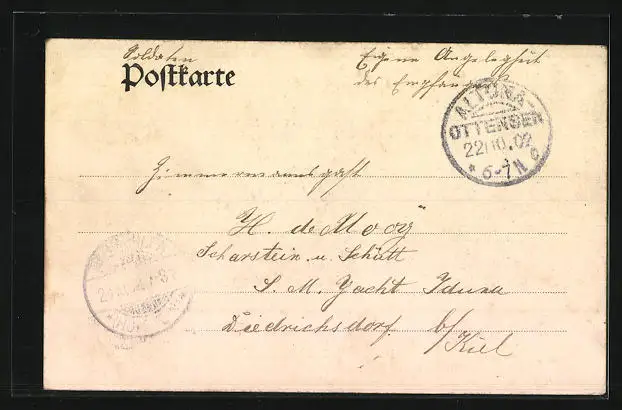 Soldaten
Postkarte
Eigene Angelegheit
des Empfängers
ALTONA-
OTTENSEN
22.10.02
* 6-7N c
Zimmermannsgast
H. de Mooy
Scharstein u. Schütt
S. M. Yacht Iduna
Diedrichsdorf b/
Kiel